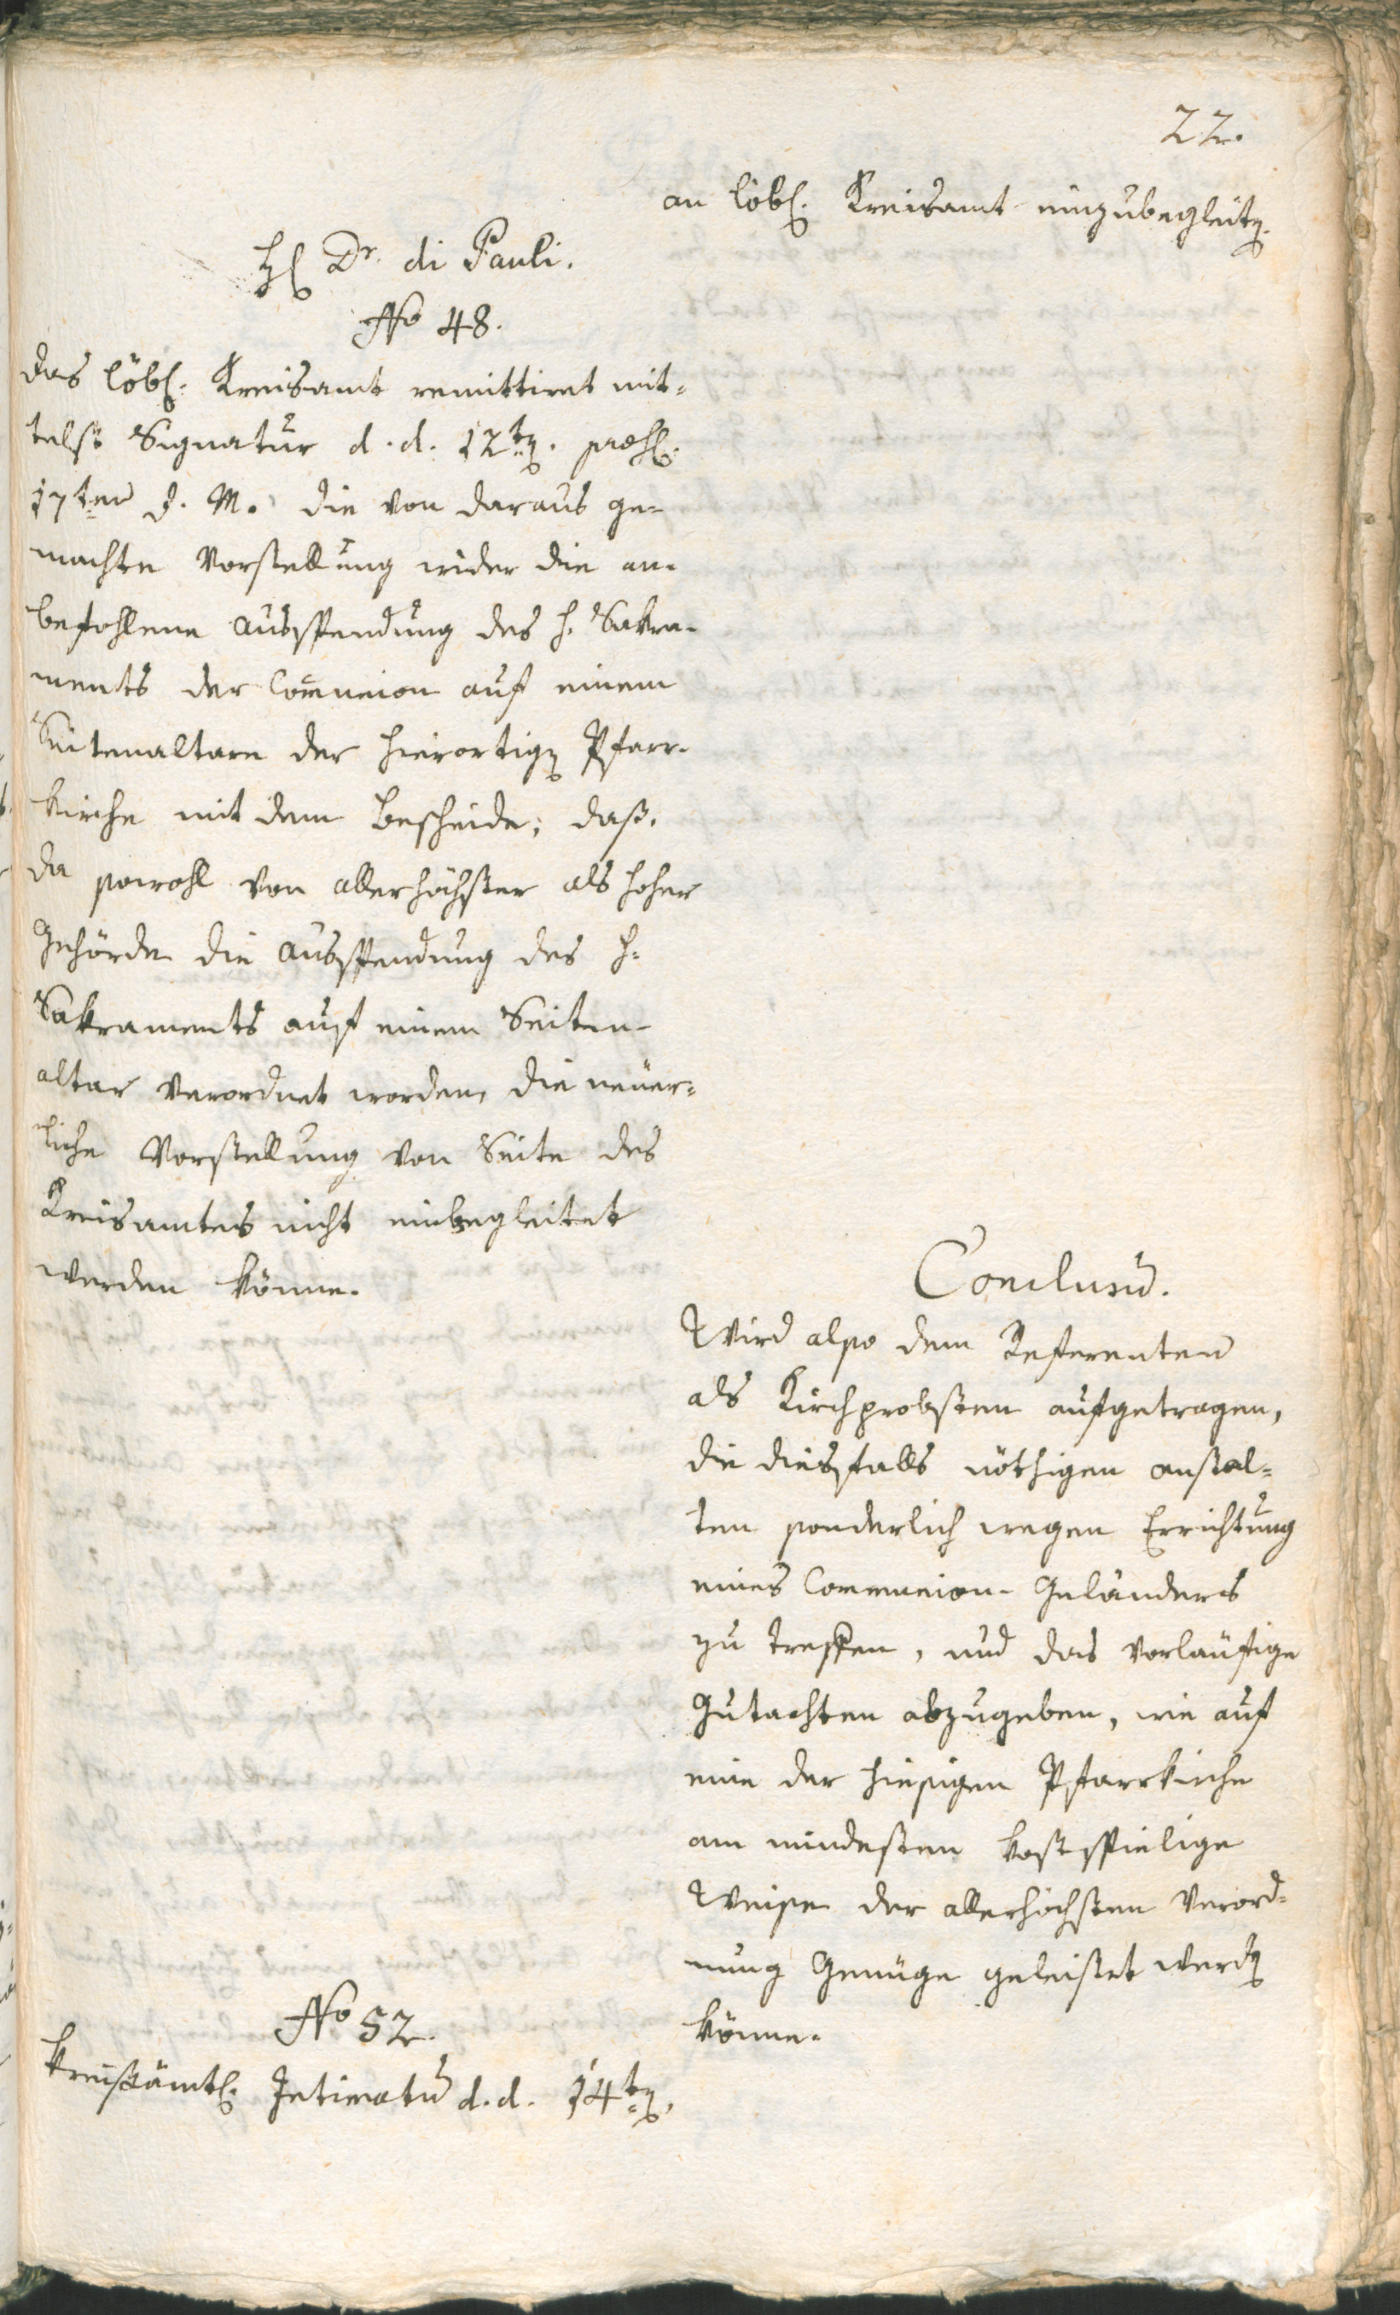 22.
an löbl. Kreisamt einzubegleiten.
H. Dr. di Pauli.
No 48.
Das löbl. Kreisamt remittiret mit-
telst Signatur d. d. 12ten. praes.
17ten d. M. die von daraus ge-
machte Vorstellung wider die an-
befohlene Ausspendung des h. Sakra-
ments der Communion auf einem
Seitenaltare der hierortigen Pfarr-
kirche mit dem Bescheide; daß,
da sowohl von allerhöchster als hoher
Gehörde die Ausspendung des h.
Sakraments auf einem Seiten-
altar verordnet worden, die neüer-
liche Vorstellung von Seite des
Kreisamtes nicht einbegleitet
werden könne.
Conclusum.
Wird also dem Referenten
als Kirchprobsten aufgetragen,
die diesfalls nöthigen Anstal-
ten sonderlich wegen Errichtung
eines Communion-Geländers
zu treffen, und das vorläufige
Gutachten abzugeben, wie auf
eine der hiesigen Pfarrkirche
am mindesten kostspielige
Weise der allerhöchsten Verord-
nung Genüge geleistet werden
könne.
No 52.
Kreisämtl. Intimatum d. d. 14ten.